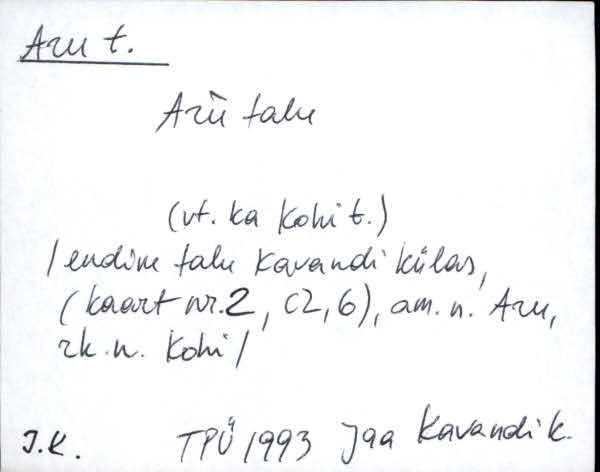 Aru t.
Arù talu
(vt. ka Kohi t.)
/endine talu Kavandi külas,
(kaart nr. 2, C2, 6), am. n. Aru,
rk. n. Kohi/
J.K. TPÜ 1993 Jaa Kavandi k.